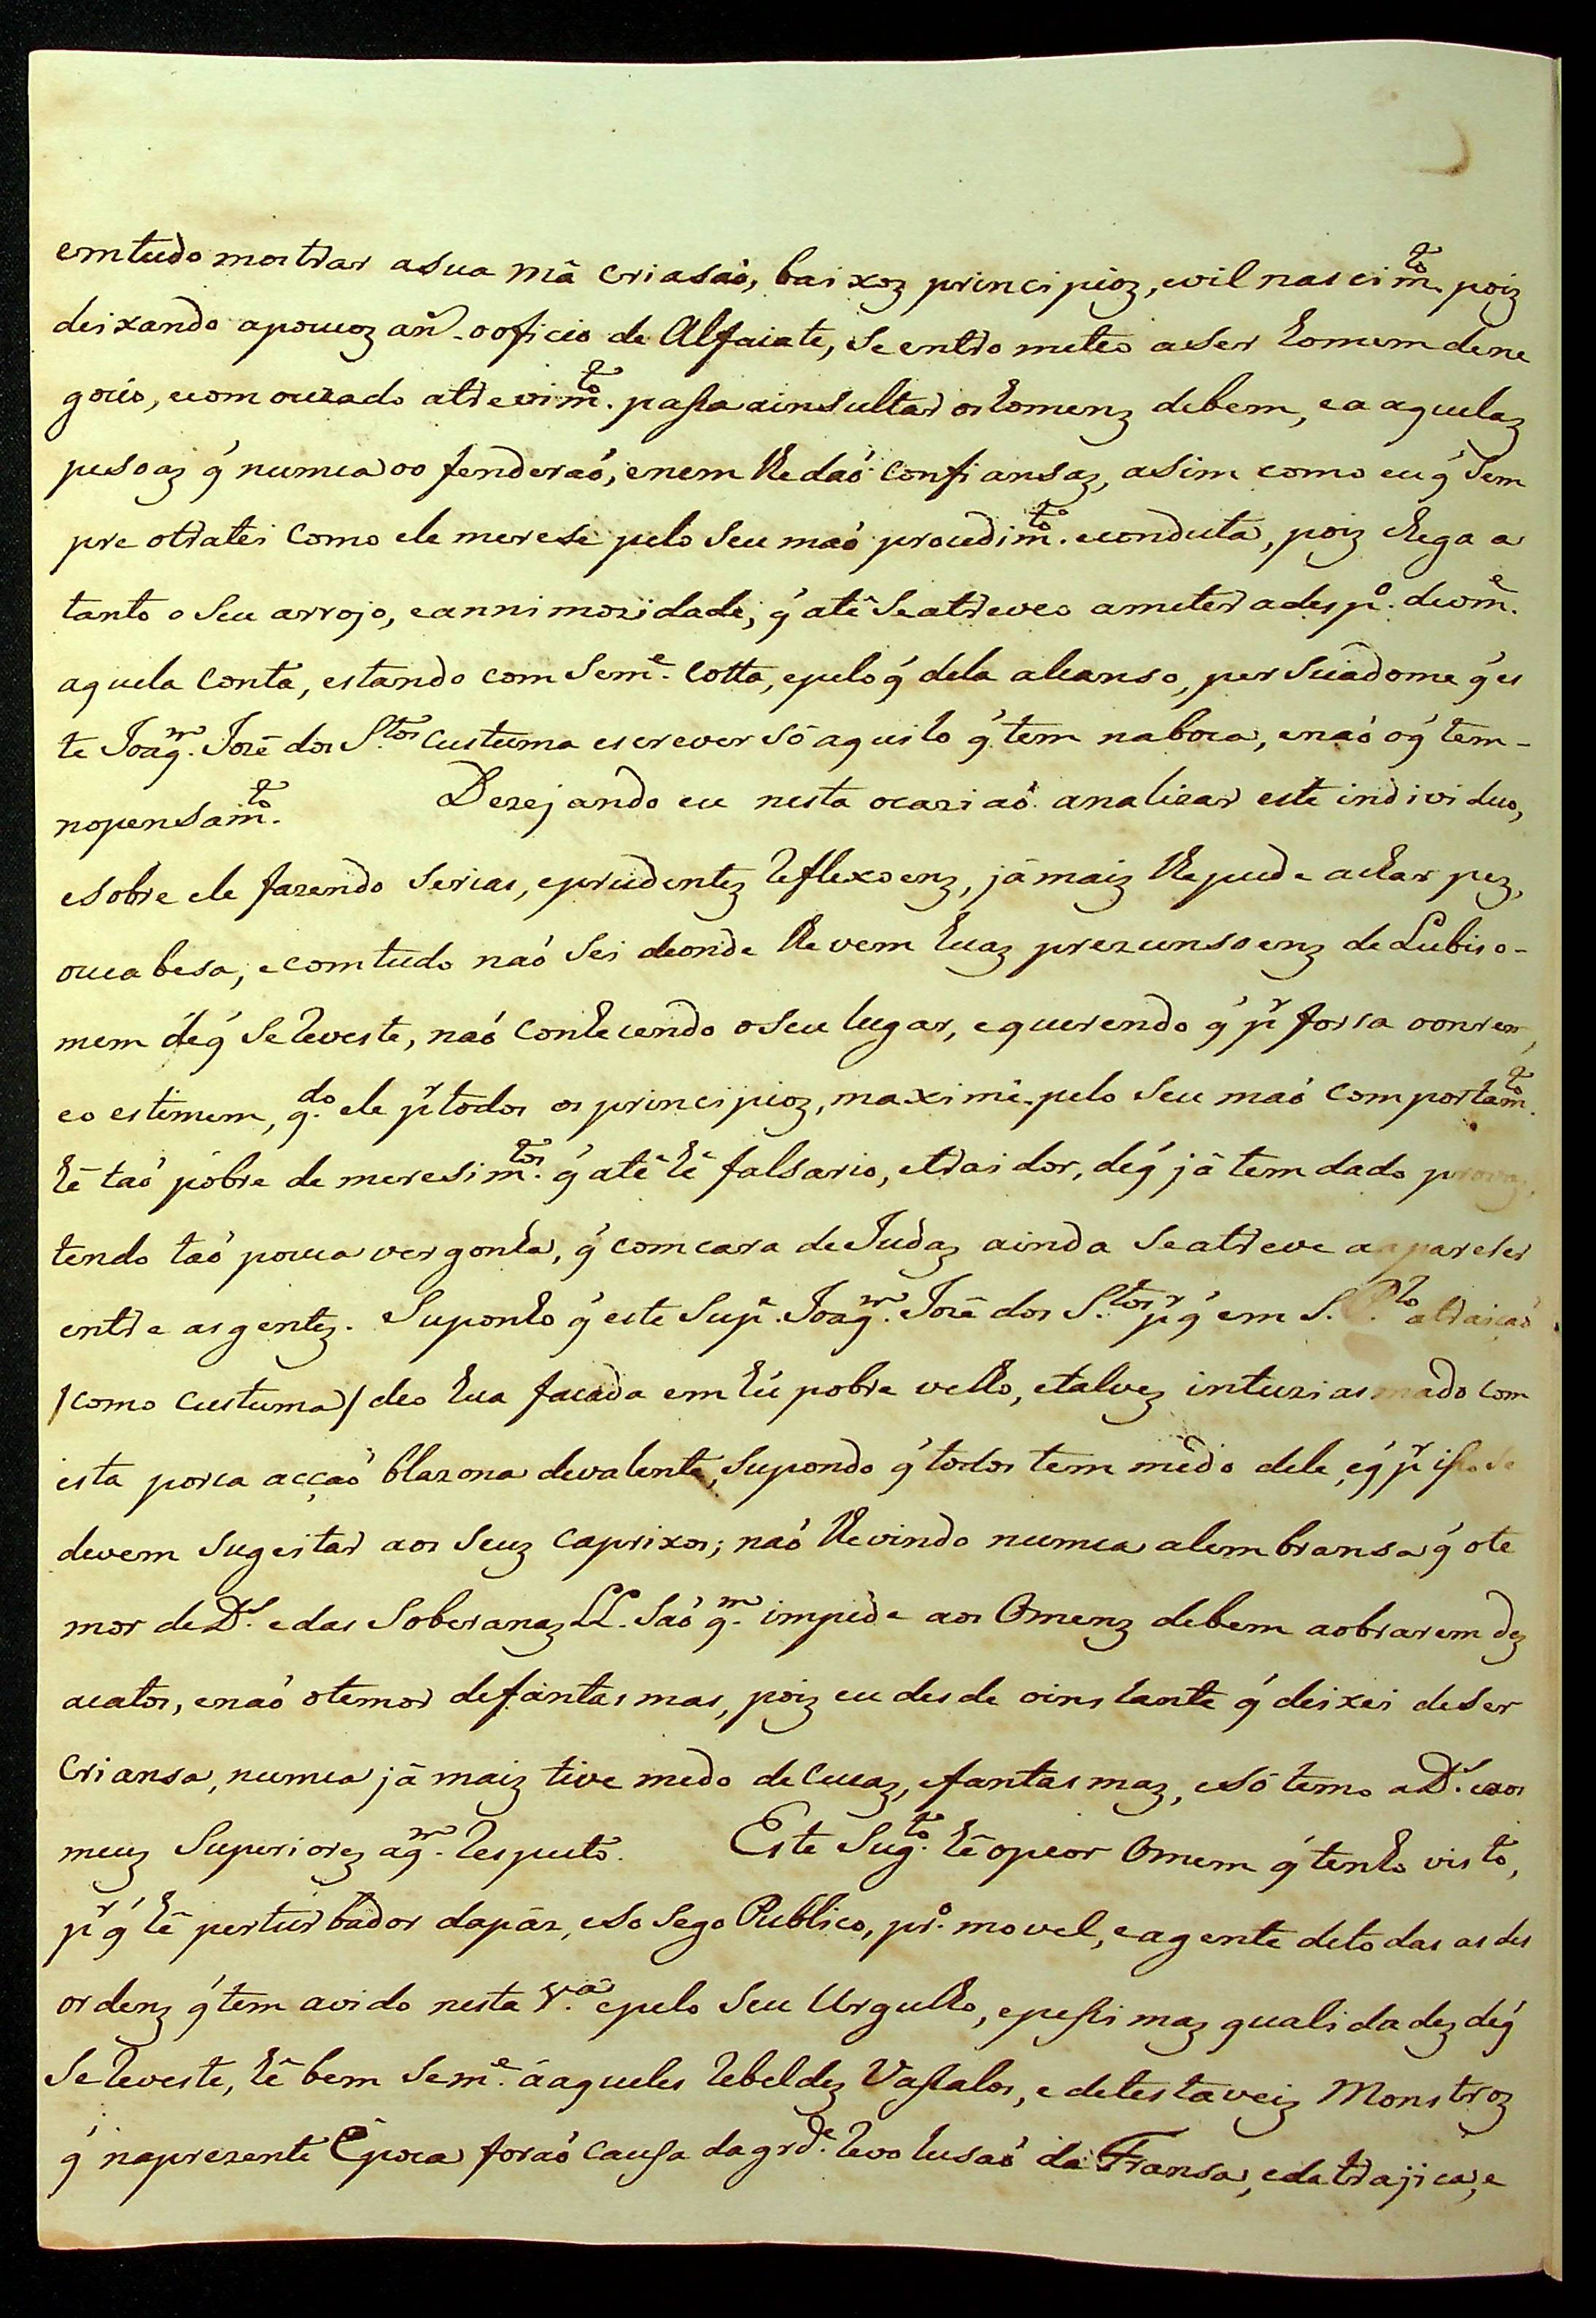 emtudo mostrar asua mâ criasaò, baixoz principioz, evil nascim.to poiz
deixando apoucoz an.s oofficio de Alfaiate, Se entro meteo aSer homem dene
gocio, ecom ouzado atrevim.to passa ainsultar os homenz debem, ea aquelaz
pesoaz q' nunca oo fenderaó, enem lhe daó confiansaz, aSim como eu q' Sem
pre otratei como ele merese pelo Seu maó procedim.to econduta, poiz chega a
tanto o Seu arrojo, eannimozidade, q' atê Se atreveo ameter adesp.o deom.e
aquela Conta, estando com Sem.e Cotta, epelo q' dela alcanso, perSuadome q' es
te Joaq.m Jozê dos S.tos custuma escrever Sô aquilo q' tem naboca, enaó oq' tem-
nopensam.to Dezejando eu nesta ocaziaó analizar este individuo,
eSobre ele fazendo Serias, eprudentez Reflexoenz, jâmaiz lhepude achar pez,
oucabesa, ecomtudo naó Sei deonde lhe vem huaz prezunsoenz de Lubiso-
mem deq' SeReveste, naó conhecendo oSeu lugar, equerendo q' p.r forsa oonrem,
eo estimem, q.do ele p.r todos os principioz, maximê pelo Seu maó comportam.to
hê taó pobre de meresim.tos q' atê hê falsario, etraidor, deq' jâ tem dado provaz,
tendo taó pouca vergonha, q' comcara deJudaz ainda Seatreve aapareser
entre asgentez. Suponho q' este Sup.e Joaq.m Jozê dos S.tos p.r q' em S. P.lo atraiçaó
/como custuma/ deo hua facada em hú pobre velho, etalvez intuziasmado com
esta porca acçaó blazona devalente, Supondo q' todos tem mêdo dele, eq' p.r isso Se
devem Sugeitar aos Seuz caprixos; naó lhevindo nunca alembransa q' ote
mor deD.s edas Soberanaz LL. Saó q.m impede aos Omenz debem aobrarem dez
acatos, enaó otemor defantasmas, poiz eu desde oinstante q' deixei deSer
Criansa, nunca jâ maiz tive medo de Cucaz, efantasmaz, eSô temo aD.s eaos
meuz Superiorez aq.m Respeito. Este Sug.to hê opeor Omem q' tenho visto,
p.r q' hê perturbador dapâz, eSosego Publico, pr.o movel, eagente detodas as des
ordenz q' tem avido nesta V.a epelo Seu Urgulho, epessimaz qualidadez deq'
SeReveste, hê bem Sem.e âaqueles Rebeldez Vassalos, edetestaveiz Monstroz
q' naprezente Êpoca foraó causa dagrd.e Revolusaó da Fransa, eda trajica, e